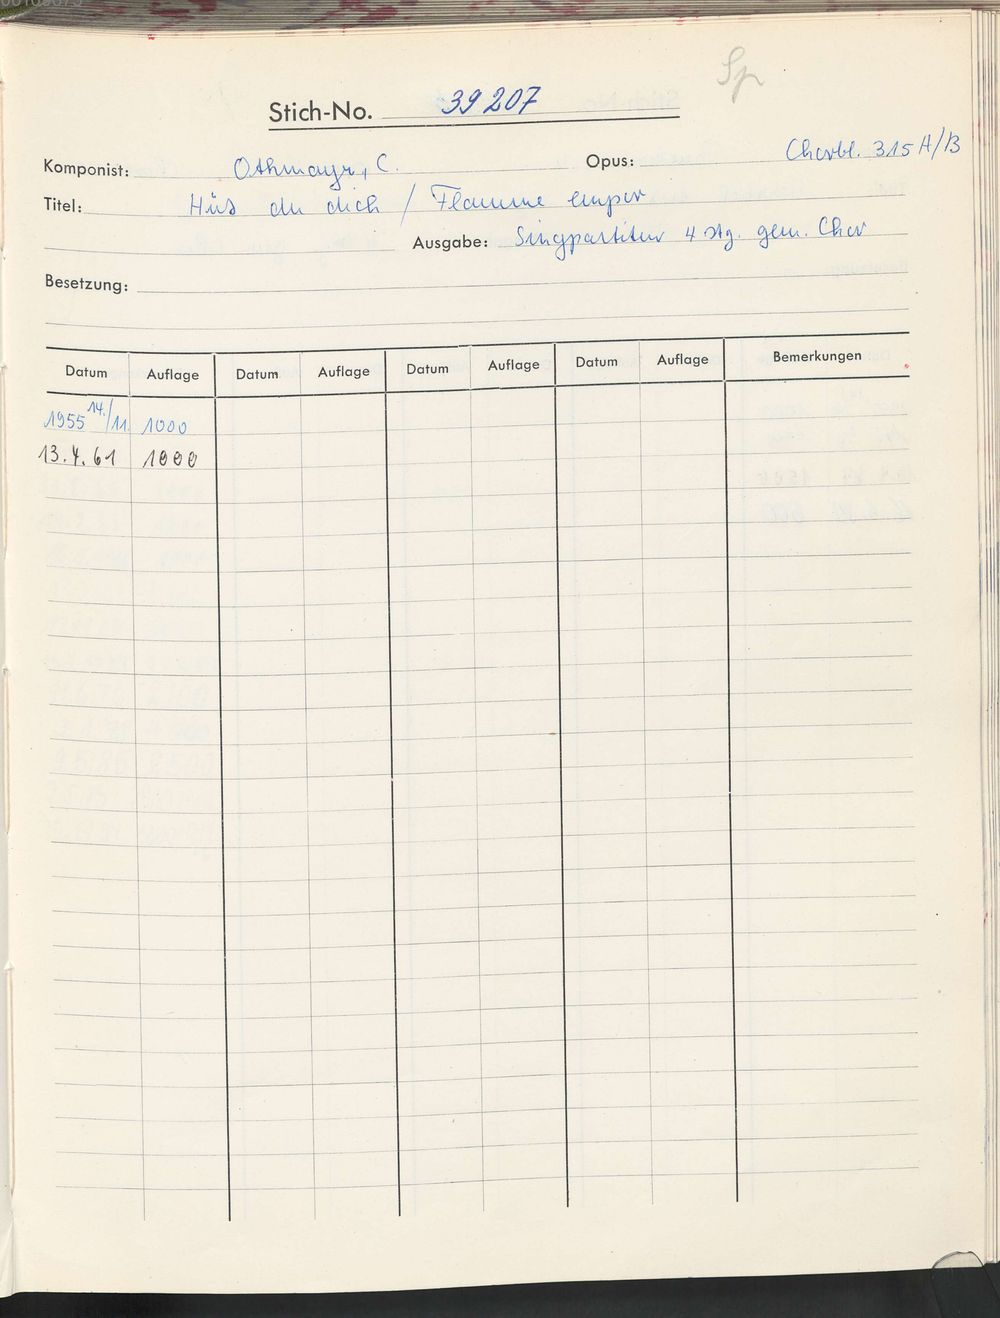 Sp
Stich-No. 39207
Komponist: Othmayr, C. Opus: Chorbl. 315 A/B
Titel: Hüt du dich / Flamme empor
Ausgabe: Singpartitur 4 stg. gem. Chor
Besetzung:
Datum Auflage Datum Auflage Datum Auflage Datum Auflage Bemerkungen
1955 14./11. 1000
13.4.61 1000